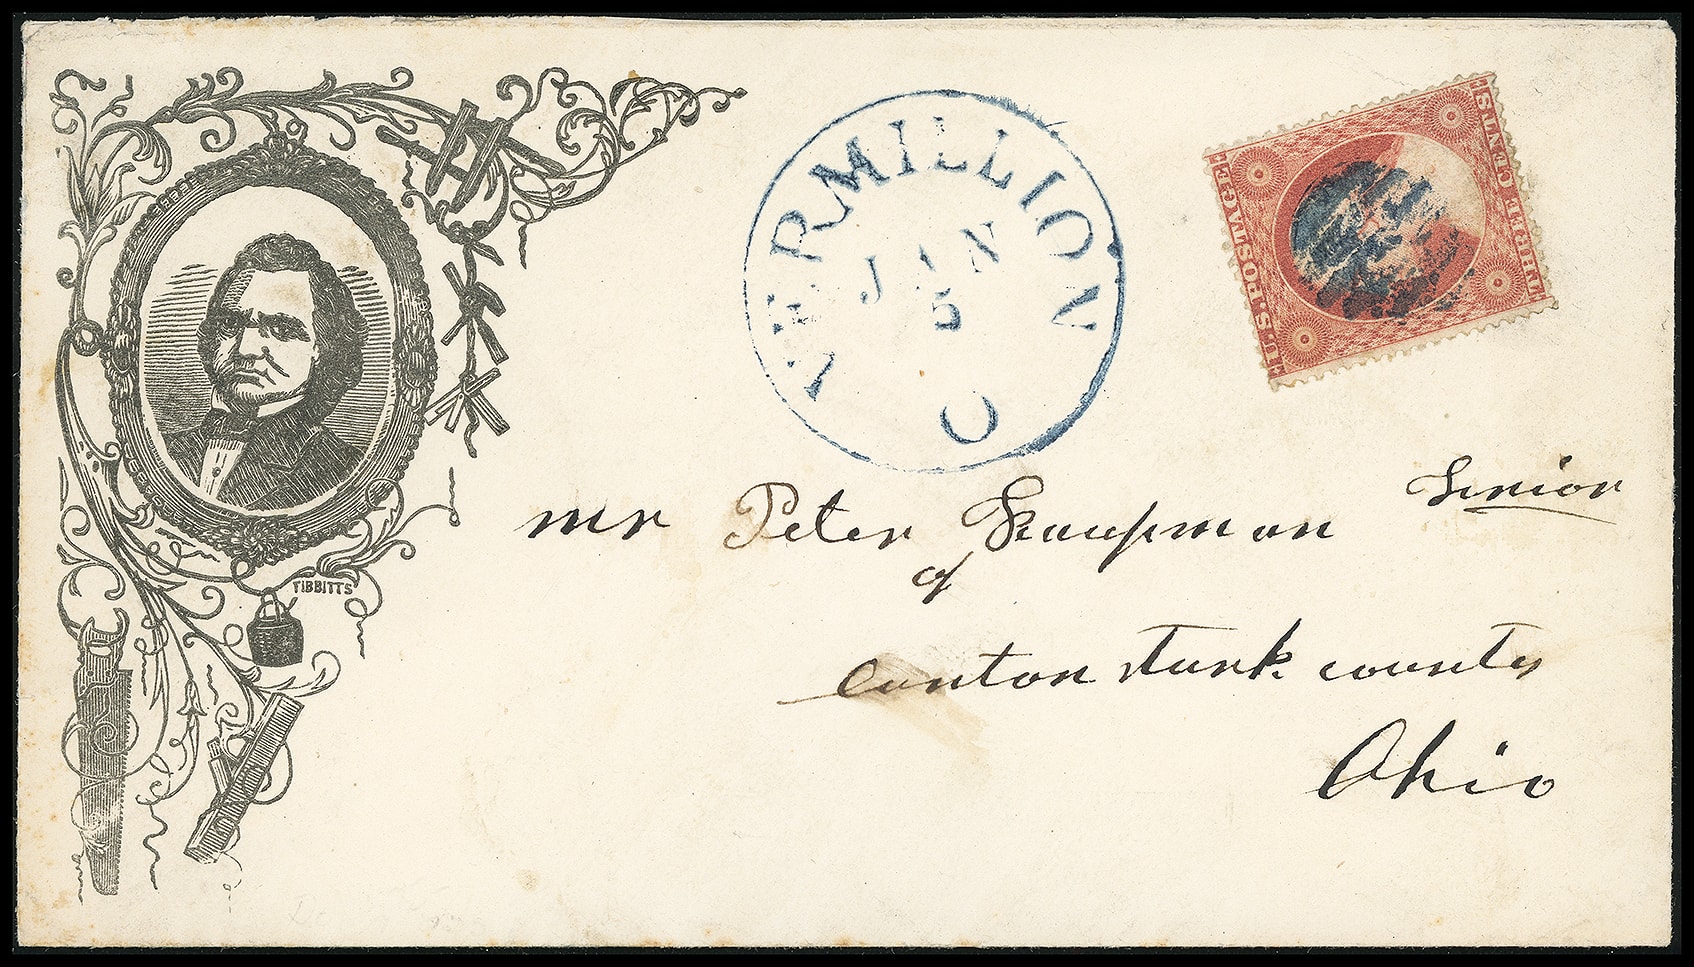 VERMILLION
JAN
5
O
U.S. POSTAGE
THREE CENTS
TIBBITTS
mr Peter Senior
of
Canton Stark county
Ohio